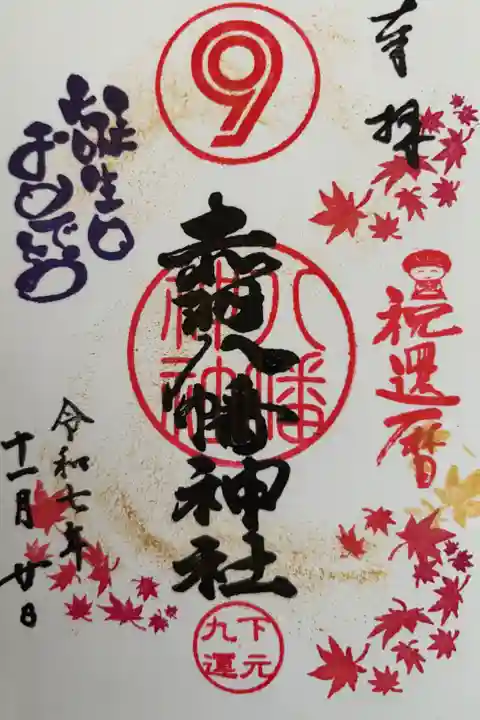 奉拝
9
祝還暦
赤羽八幡神社
八幡
神社
誕生日
おめでとう
令和七年
十一月廿日
下元
九運